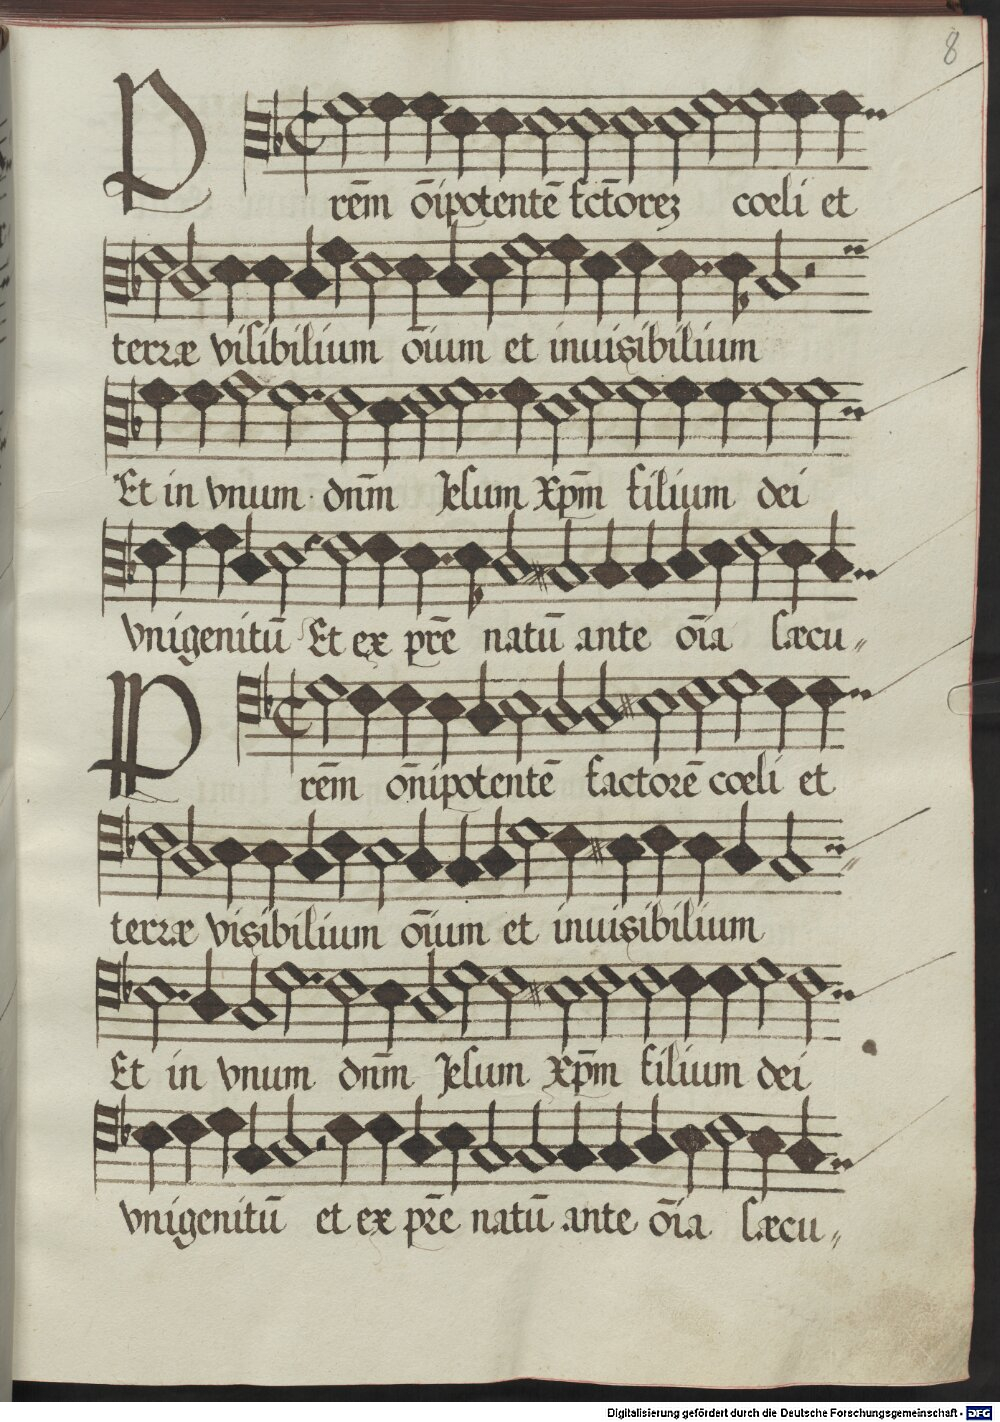 8
P
rēm ōīpotentē fctōrez coeli et
terræ visibilium ōium et inuisibilium
Et in vnum dnm̄ Jesum Xpm̄ filium dei
vnigenitū Et ex prē natū ante ōia sæcu〃
P
rēm ōnipotentē factorē coeli et
terræ visibilium ōium et inuisibilium
Et in vnum dnm̄ Jesum Xpm̄ filium dei
vnigenitū et ex prē natū ante ōia sæcu〃
Digitalisierung gefördert durch die Deutsche Forschungsgemeinschaft - DFG